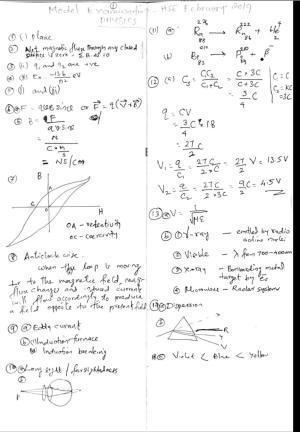 Model Examination - HSE February 2019
PHYSICS
① (1) Plane
② Net magnetic flux through any closed
surface is zero
③ q₁ and q₂ are +ve
④ En = -13.6 / n² eV
⑤ (1) and (3)
⑥ F = qvB sinθ or F = q(v × B)
B = F / qv sinθ
= N / C × m/s
= NS/Cm
⑦
B
H
OA - retentivity
OC - coercivity
⑧ Anticlock wise.
when the loop is moving
⊥r to the magnetic field, magnetic
flux changes and induced current
will flow accordingly to produce
a field oppose to the present field
⑨ (a) Eddy current
(b) (i) Induction furnace
(ii) Induction breaking
⑩ (a) Long sight / farsightedness
(b)
⑪ (a) Ra 226 88 → Rn 222 86 + He 4 2
(b) Bi 210 83 → Po 210 84 + β⁻
⑫ (a) Cs = C₁C₂ / C₁+C₂ = C × 3C / C + 3C
= 3/4 C
q = CV
= 3/4 C × 18
= 27C / 2
V₁ = q/C₁ = 27C / 2C = 27/2 V = 13.5V
V₂ = q/C₂ = 27C / 2×3C = 9/2 = 4.5V
⑬ (a) V = 1/√με
(b) ① γ-ray - emitted by radio
active nuclei
② Visible - λ from 700-400nm
③ X-ray - Bombarding metal
target by e⁻
④ Microwave - Radar system
⑭ (a) Dispersion
(b)
R
V
(c) Violet < Blue < Yellow